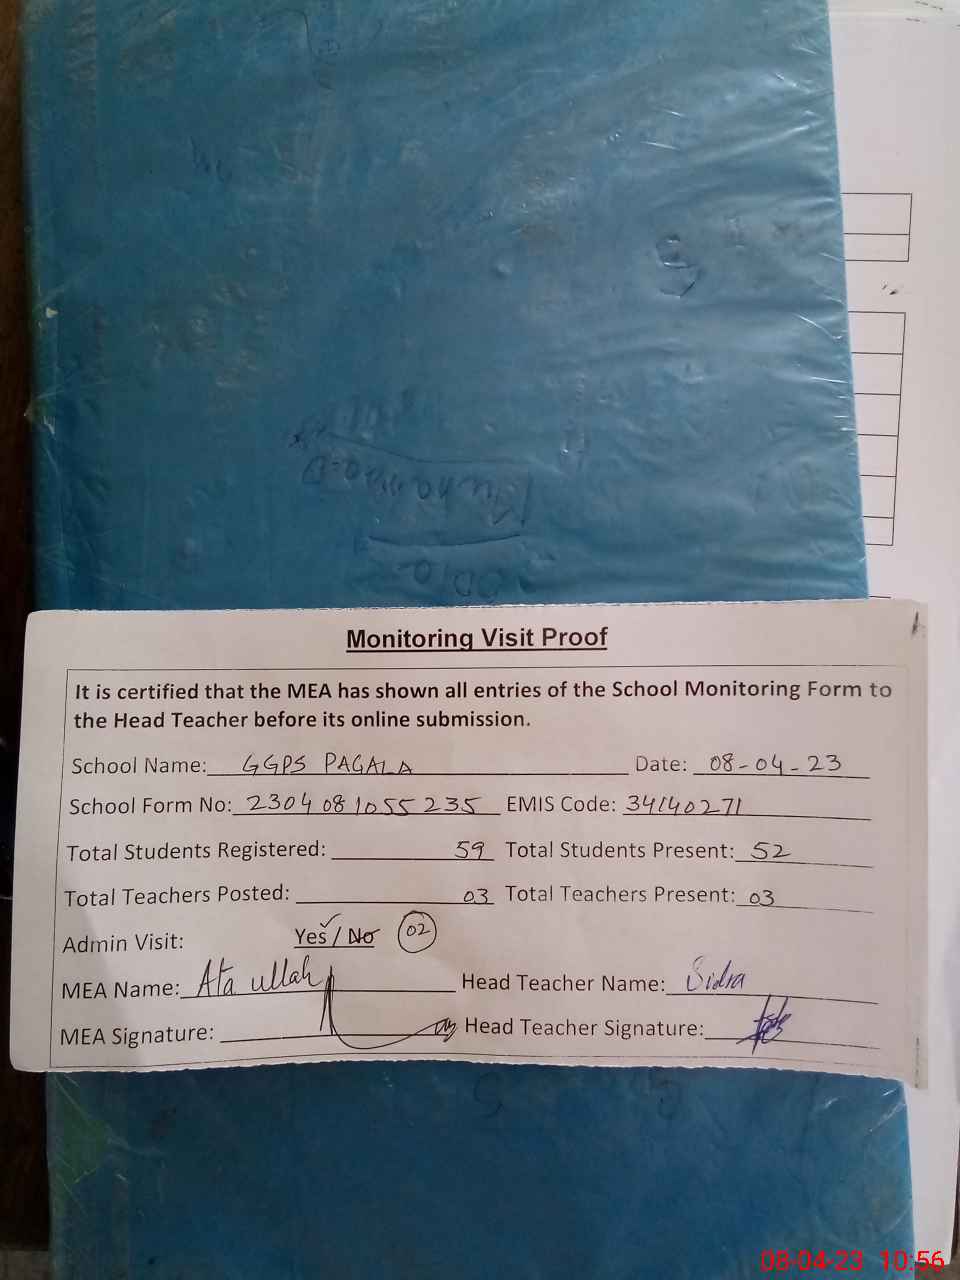 Monitoring Visit Proof
It is certified that the MEA has shown all entries of the School Monitoring Form to
the Head Teacher before its online submission.
School Name: GGPS PAGALA Date: 08-04-23
School Form No: 2304081055235 EMIS Code: 34140271
Total Students Registered: 59 Total Students Present: 52
Total Teachers Posted: 03 Total Teachers Present: 03
Admin Visit: Yes / No 02
MEA Name: Ata ullah Head Teacher Name: Sidra
MEA Signature: Head Teacher Signature:
08-04-23 10:56